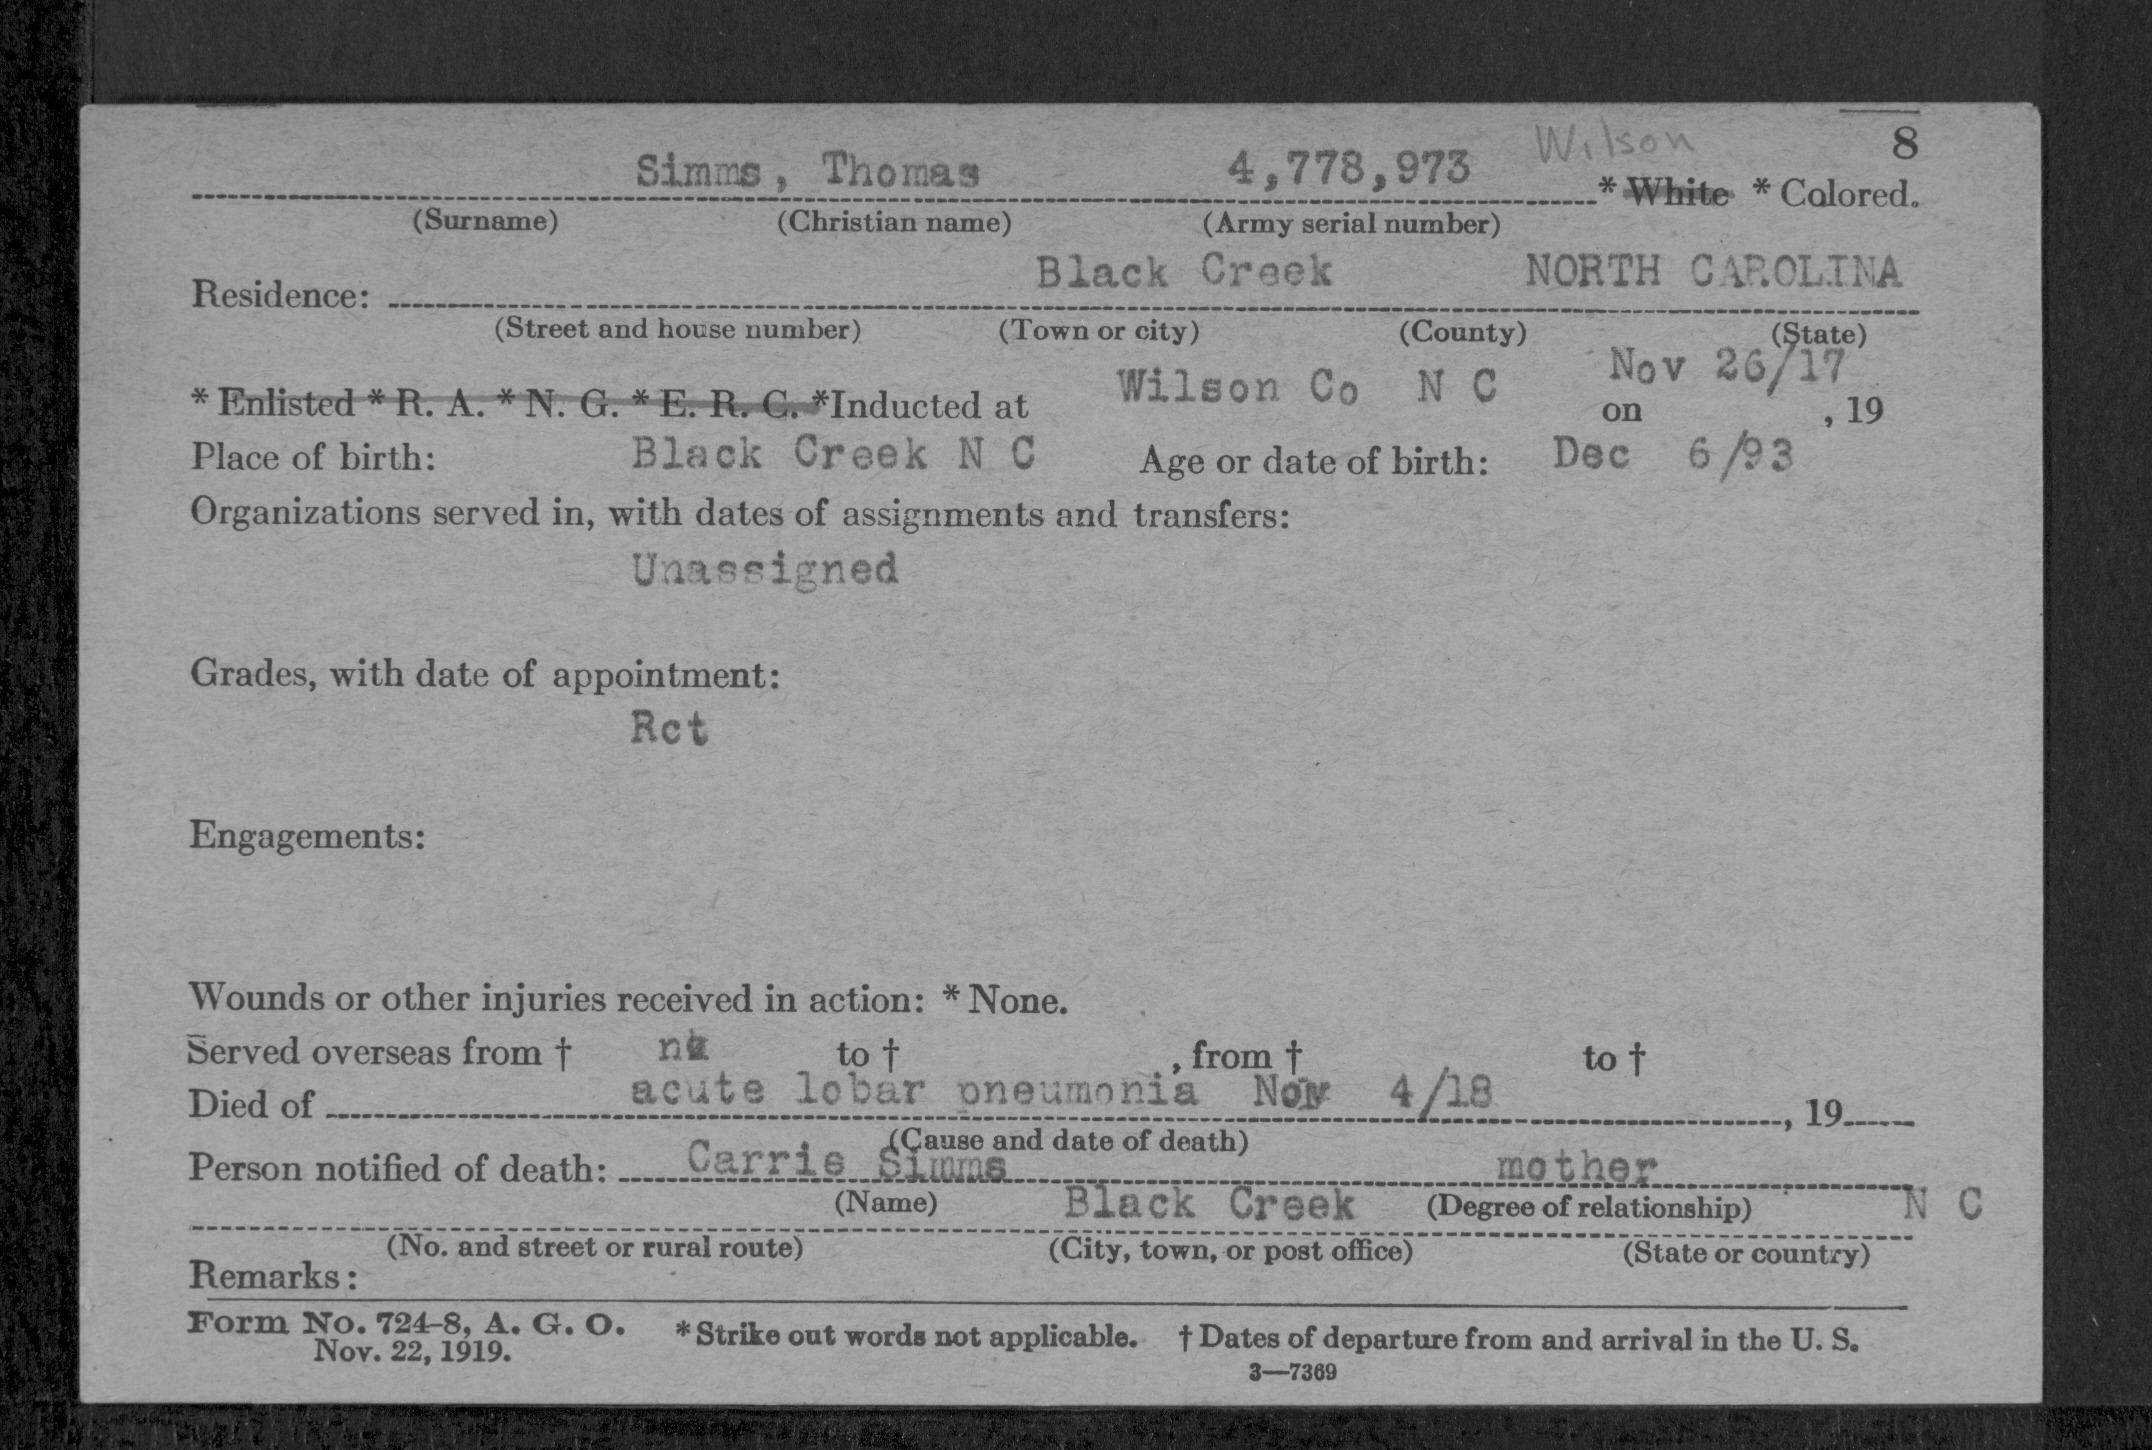 Wilson 8
Simms, Thomas 4,778,973 * White * Colored.
(Surname) (Christian name) (Army serial number)
Residence: Black Creek NORTH CAROLINA
(Street and house number) (Town or city) (County) (State)
* Enlisted * R. A. * N. G. * E. R. C. *Inducted at Wilson Co N C on Nov 26/17, 19
Place of birth: Black Creek N C Age or date of birth: Dec 6/93
Organizations served in, with dates of assignments and transfers:
Unassigned
Grades, with date of appointment:
Rct
Engagements:
Wounds or other injuries received in action: * None.
Served overseas from † to † , from † to †
Died of acute lobar pneumonia Nov 4/18, 19
(Cause and date of death)
Person notified of death: Carrie Simms mother
(Name) (Degree of relationship)
Black Creek N C
(No. and street or rural route) (City, town, or post office) (State or country)
Remarks:
Form No. 724-8, A. G. O. * Strike out words not applicable. † Dates of departure from and arrival in the U. S.
Nov. 22, 1919.
3—7369